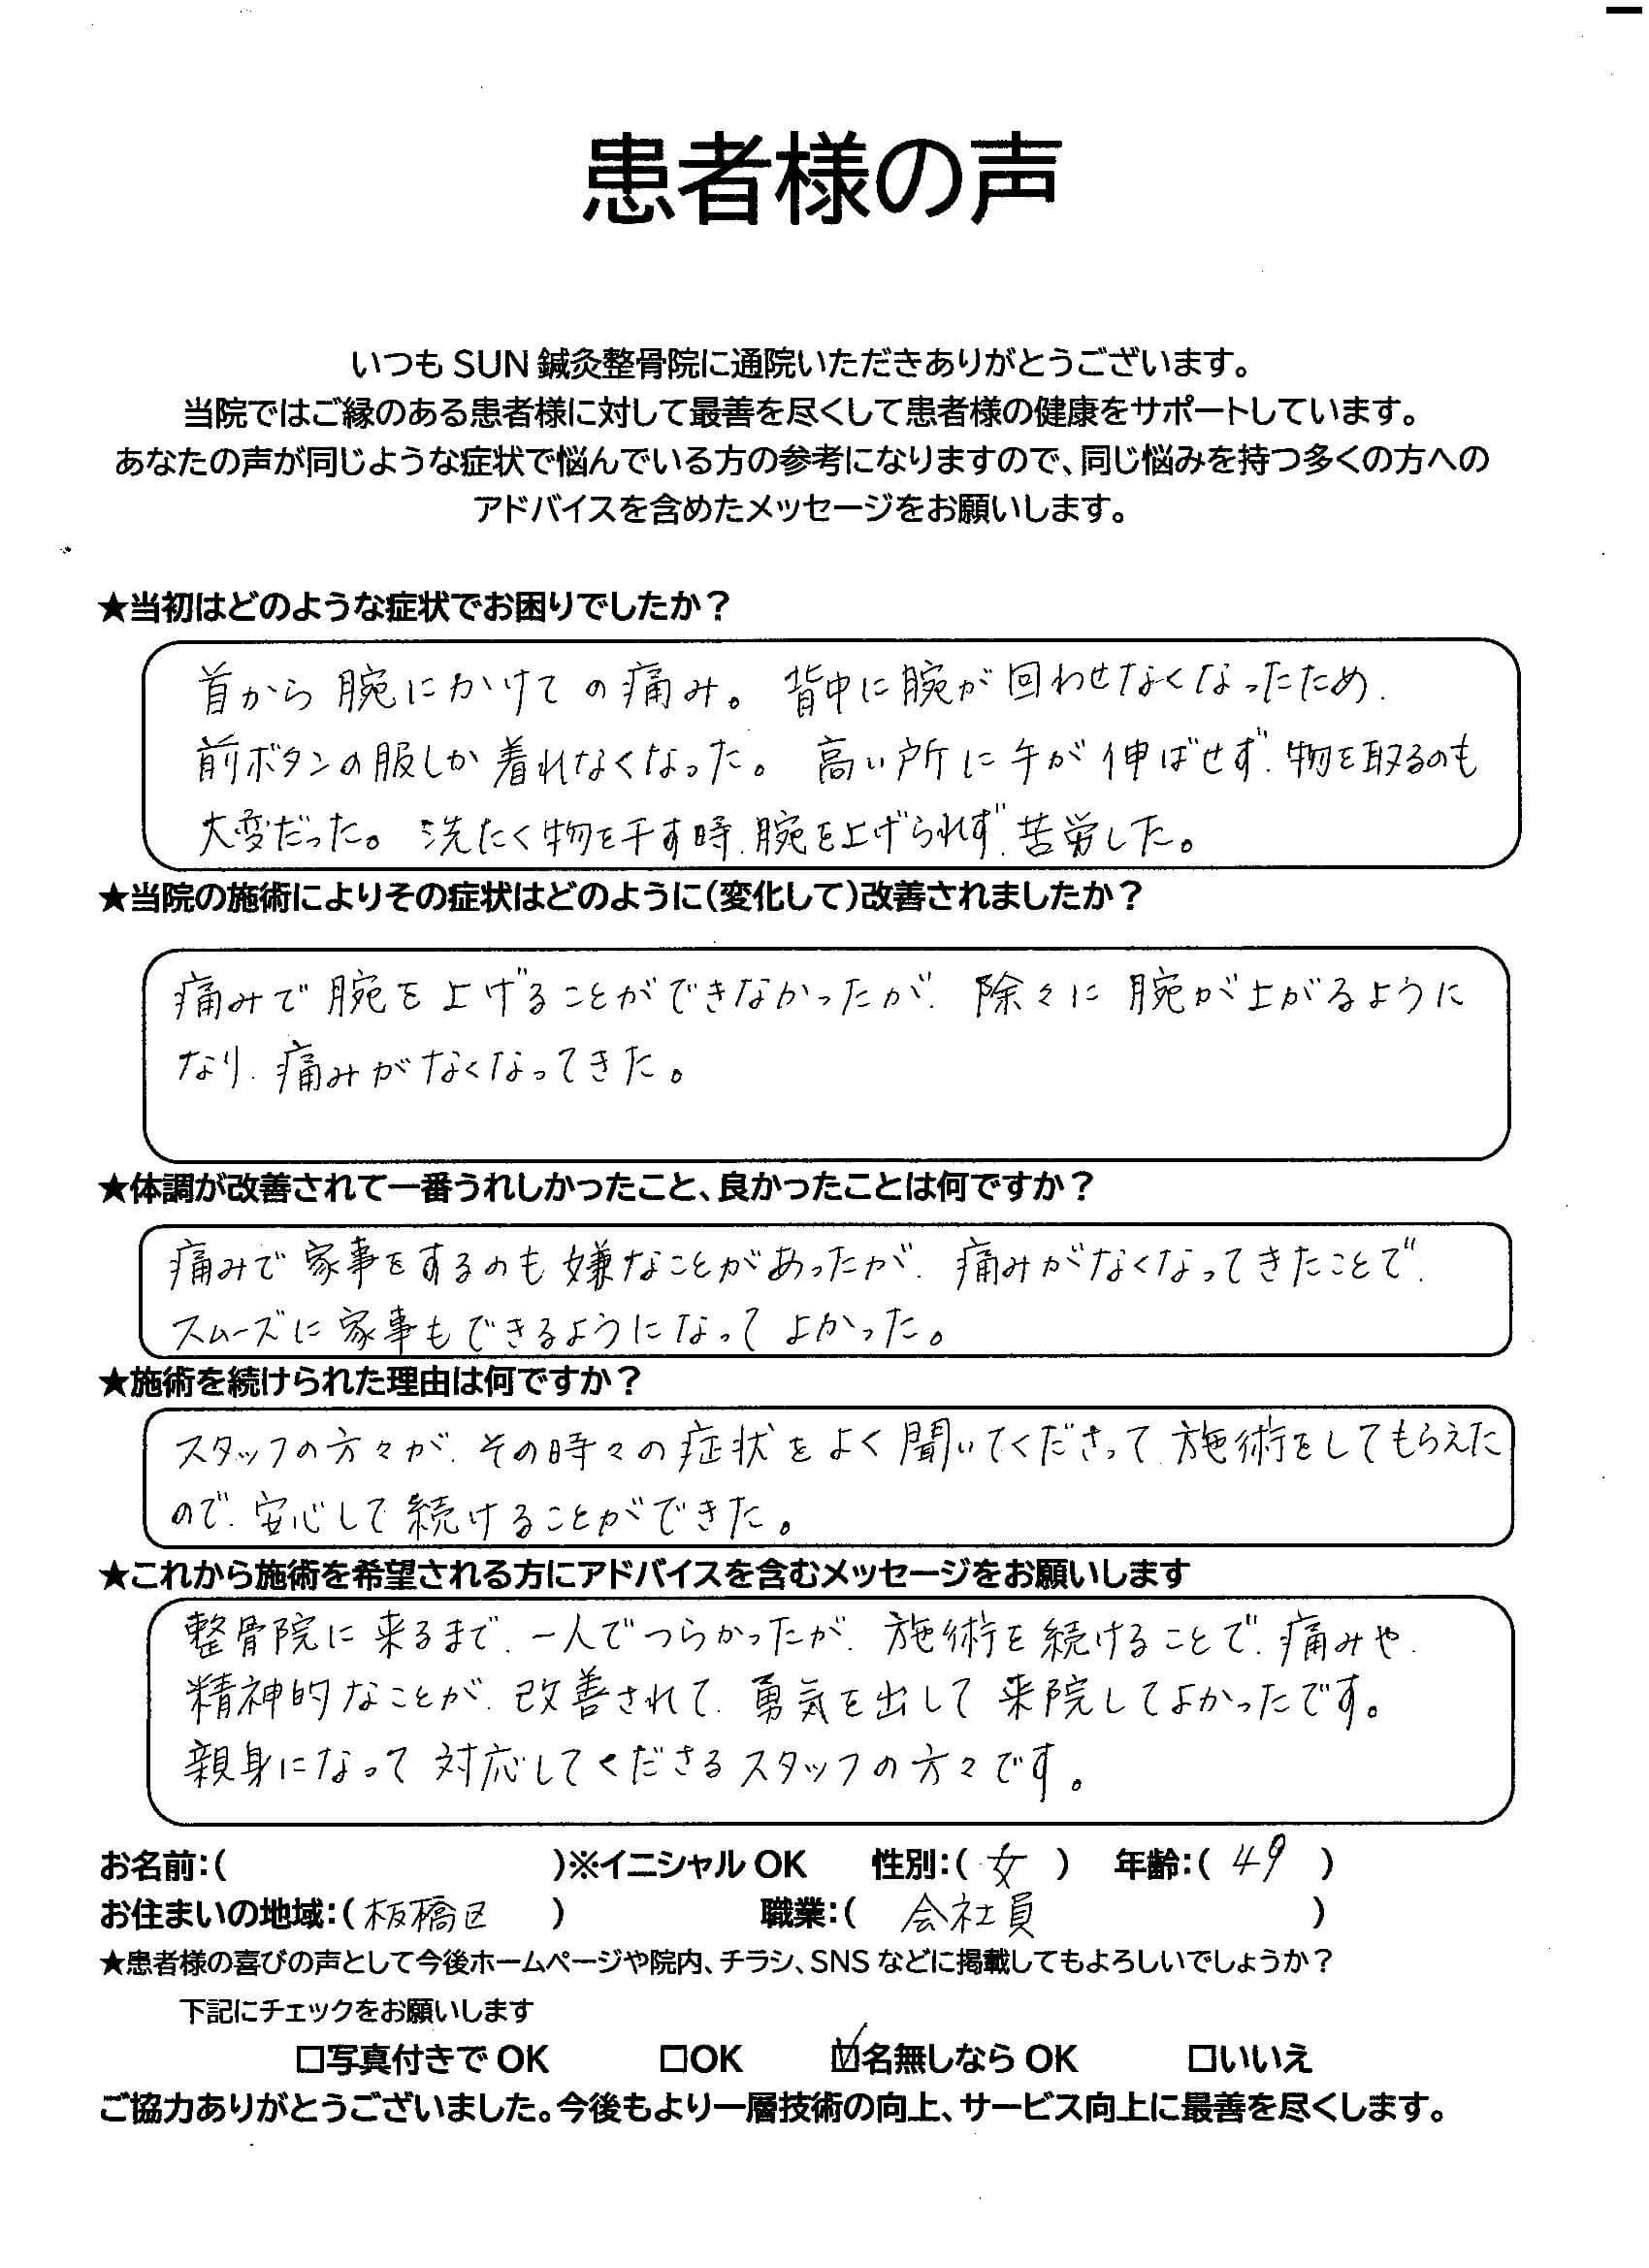 患者様の声
いつも SUN 鍼灸整骨院に通院いただきありがとうございます。
当院ではご縁のある患者様に対して最善を尽くして患者様の健康をサポートしています。
あなたの声が同じような症状で悩んでいる方の参考になりますので、同じ悩みを持つ多くの方への
アドバイスを含めたメッセージをお願いします。
★当初はどのような症状でお困りでしたか？
首から腕にかけての痛み。背中に腕が回わせなくなったため、
前ボタンの服しか着れなくなった。高い所に手が伸ばせず、物を取るのも
大変だった。洗たく物を干す時、腕を上げられず、苦労した。
★当院の施術によりその症状はどのように(変化して)改善されましたか？
痛みで腕を上げることができなかったが、除々に腕が上がるように
なり、痛みがなくなってきた。
★体調が改善されて一番うれしかったこと、良かったことは何ですか？
痛みで家事をするのも嫌なことがあったが、痛みがなくなってきたことで、
スムーズに家事もできるようになってよかった。
★施術を続けられた理由は何ですか？
スタッフの方々が、その時々の症状をよく聞いてくださって、施術をしてもらえた
ので、安心して続けることができた。
★これから施術を希望される方にアドバイスを含むメッセージをお願いします
整骨院に来るまで、一人でつらかったが、施術を続けることで、痛みや、
精神的なことが、改善されて、勇気を出して来院してよかったです。
親身になって対応してくださるスタッフの方々です。
お名前：( )※イニシャル OK 性別：( 女 ) 年齢：( 49 )
お住まいの地域：( 板橋区 ) 職業：( 会社員 )
★患者様の喜びの声として今後ホームページや院内、チラシ、SNS などに掲載してもよろしいでしょうか？
下記にチェックをお願いします
□写真付きで OK □OK ☑名無しなら OK □いいえ
ご協力ありがとうございました。今後もより一層技術の向上、サービス向上に最善を尽くします。